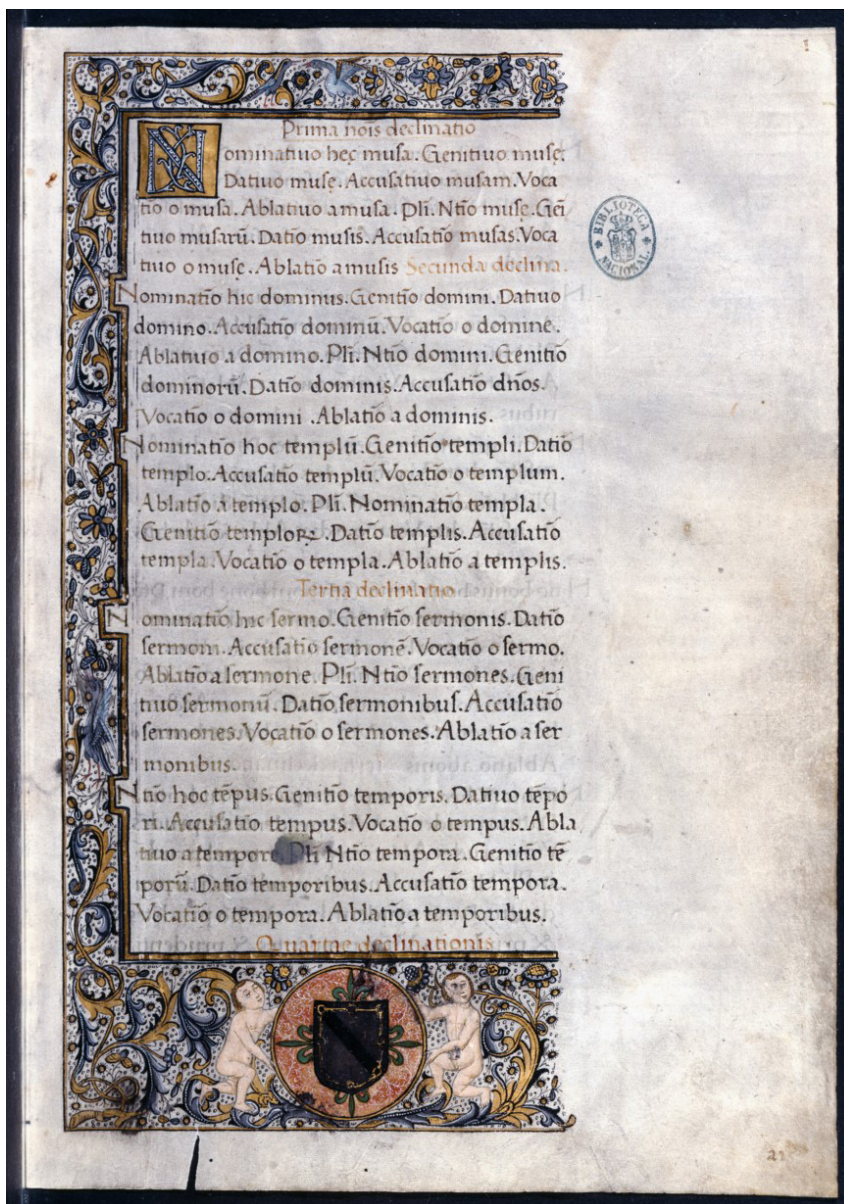 1
Prima nois declinatio
Nominatiuo hec musa. Genitiuo musę.
Datiuo musę. Accusatiuo musam. Voca
tio o musa. Ablatiuo a musa. Pli. Ntio musę. Gēi
tiuo musarū. Datio musis. Accusatio musas. Voca
tiuo o musę. Ablatio a musis Secunda declina.
Nominatio hic dominus. Genitio domini. Datiuo
domino. Accusatio dominū. Vocatio o domine.
Ablatiuo a domino. Pli. Ntio domini. Genitio
dominorū. Datio dominis. Accusatio dnos.
Vocatio o domini. Ablatio a dominis.
Nominatio hoc templū. Genitio templi. Datio
templo. Accusatio templū. Vocatio o templum.
Ablatio a templo. Pli. Nominatio templa.
Genitio temploꝝ. Datio templis. Accusatio
templa. Vocatio o templa. Ablatio a templis.
Tertia declinatio
Nominatio hic sermo. Genitio sermonis. Datio
sermoni. Accusatio sermonē. Vocatio o sermo.
Ablatio a sermone. Pli. Ntio sermones. Geni
tiuo sermonū. Datio sermonibus. Accusatio
sermones. Vocatio o sermones. Ablatio a ser
monibus.
Ntio hoc tēpus. Genitio temporis. Datiuo tēpo
ri. Accusatio tempus. Vocatio o tempus. Abla
tiuo a tempore. Pli Ntio tempora. Genitio tē
porū. Datio temporibus. Accusatio tempora.
Vocatio o tempora. Ablatio a temporibus.
Quartae declinationis
BIBLIOTECA NACIONAL